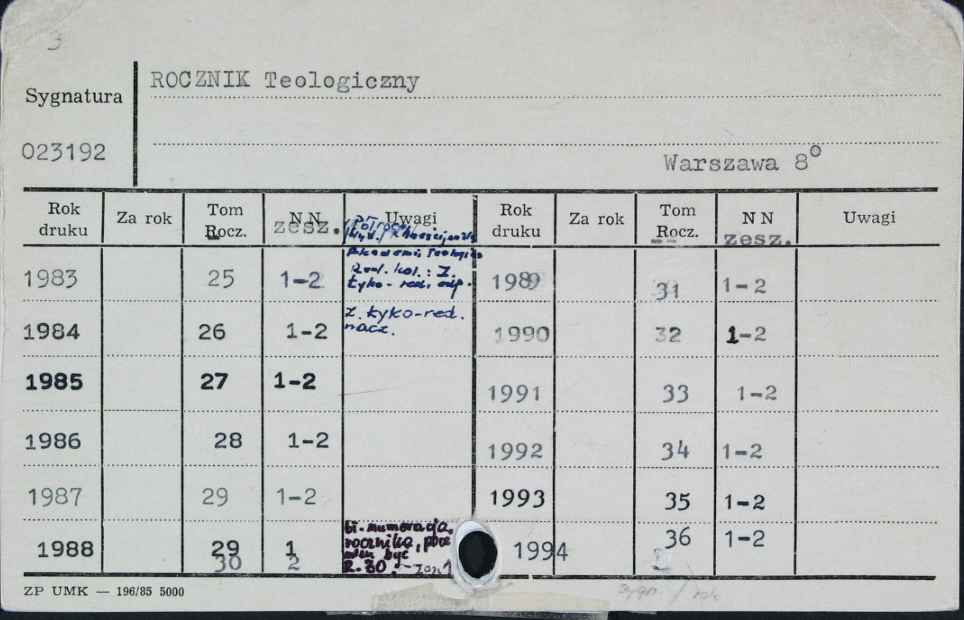 3
ROCZNIK Teologiczny
Sygnatura
023192
Warszawa 8°
Rok druku Za rok Tom Rocz. NN zesz. Uwagi Rok druku Za rok Tom Rocz. NN zesz. Uwagi
Akademii Teologicz
Red. kol.: Z.
Łyko - red. odp.
1983 25 1-2 1989 31 1-2
Z. Łyko-red.
nacz.
1984 26 1-2 1990 32 1-2
1985 27 1-2 1991 33 1-2
1986 28 1-2 1992 34 1-2
1987 29 1-2 1993 35 1-2
numeracja
rocznika, być
R. 30. - zesz 1
1988 29 1 1994 36 1-2
30 2
ZP UMK — 196/85 5000